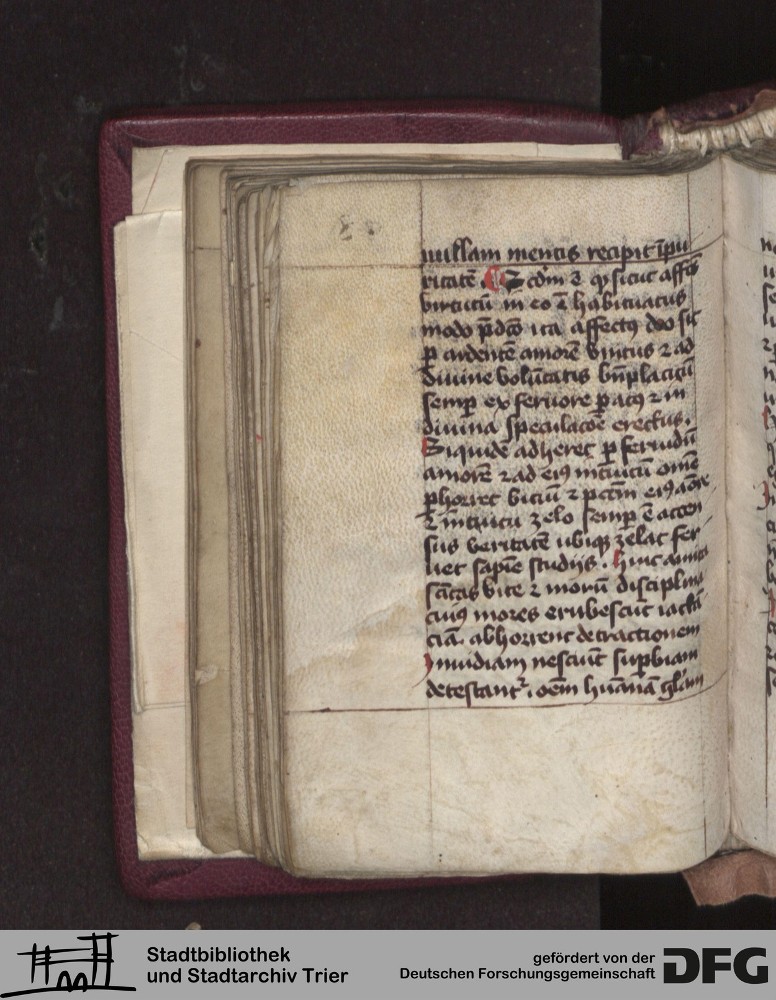 nullam mentis recipit ĩpu
ritatẽ Scd̃m ẽ ꝙ sicut affc̃s
virtutũ in eo ẽ habituatus
modo p̃dc̃o ita affectꝰ deo sit
ꝑ ardentẽ amorẽ vnitus ⁊ ad
diuine volũtatis bñplacitũ
semꝑ ex feruore ꝑatꝰ ⁊ in
diuina speculac̃oe erectus.
Siquidẽ adheret ꝑ feruidũ
amorẽ ⁊ ad eiꝰ intuitũ om̃e
ꝑhorret viciũ ⁊ pctm̃ eiꝰ amõre
⁊ intuitu zelo semꝑ ẽ accen
sus veritatẽ vbiqꝫ zelat fer
uet sapiẽ studijs. hinc
sc̃itas vite ⁊ morũ disciplina
cuiꝰ mores erubescũt iactã
ciã. abhorrent detractionem
inuidiam nesciũt suꝑbiam
detestant᷑. oẽm hũanã glãm
Stadtbibliothek
und Stadtarchiv Trier
gefördert von der
Deutschen Forschungsgemeinschaft
DFG